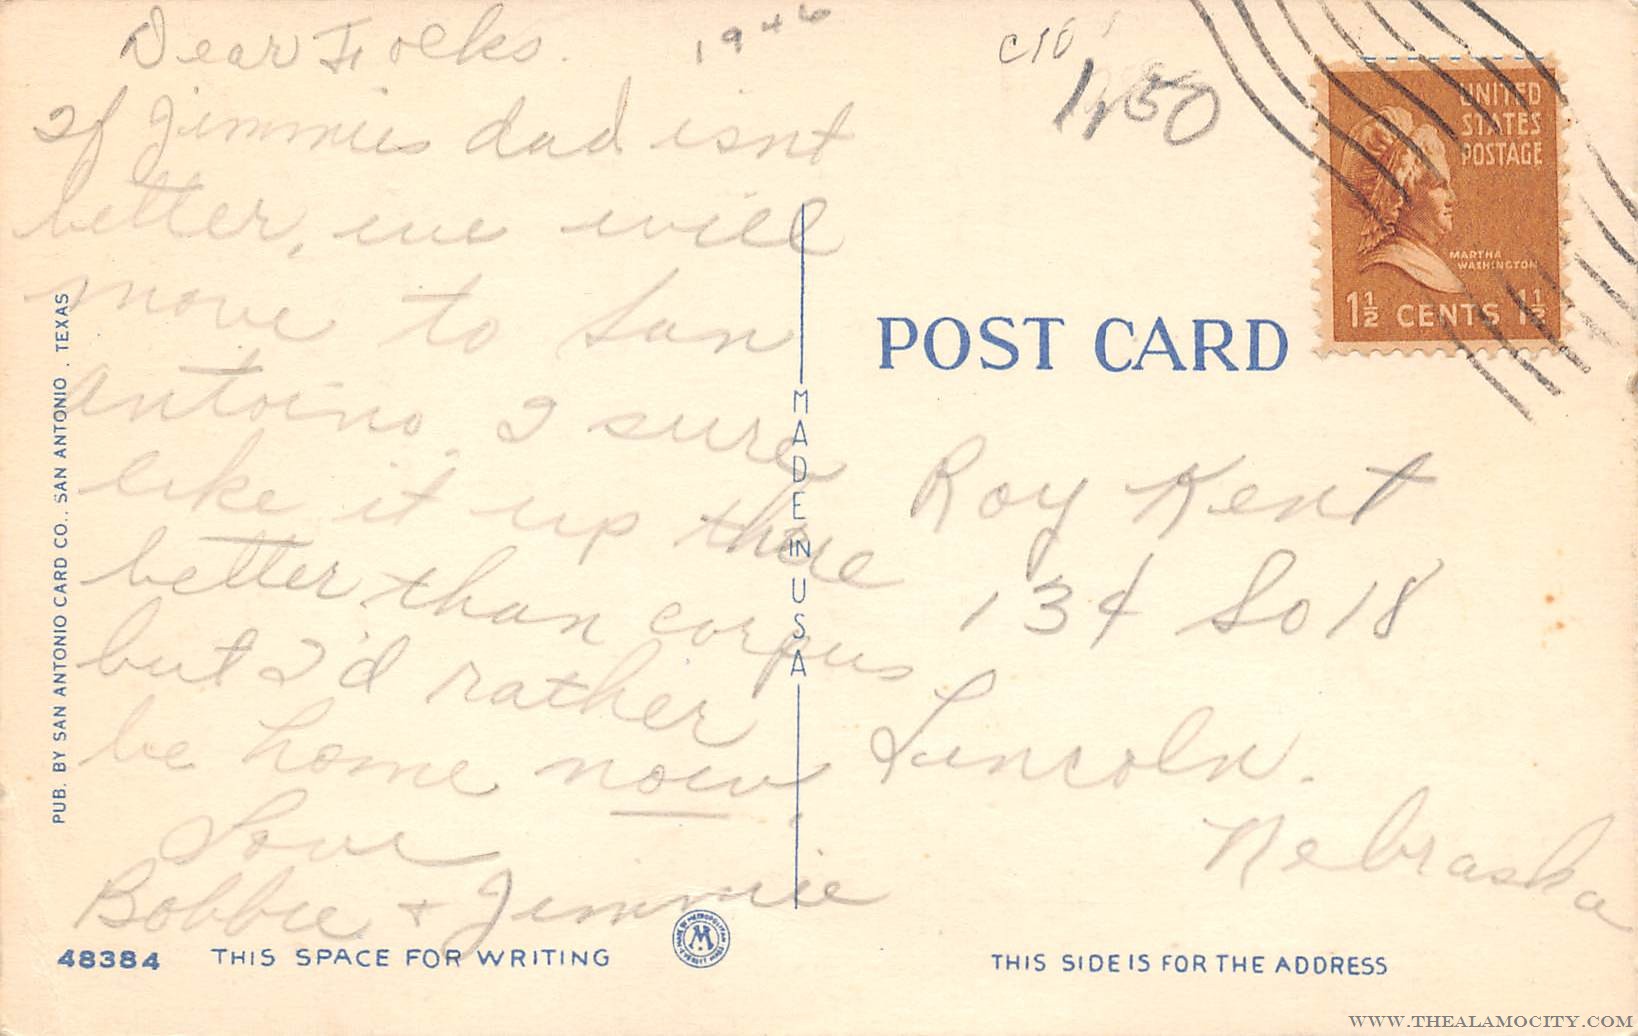 Dear Folks.
If Jimmies dad isnt
better, we will
move to San
Antoino. I sure
like it up there
better than corpus
but I'd rather
be home now.
Love
Bobbie + Jimmie
1946
C10
1,50
UNITED
STATES
POSTAGE
MARTHA
WASHINGTON
1½ CENTS 1½
POST CARD
Roy Kent
134 So 18
Lincoln.
Nebraska
PUB. BY SAN ANTONIO CARD CO., SAN ANTONIO, TEXAS
MADE IN USA
48384 THIS SPACE FOR WRITING
MADE BY METROPOLITAN
M
EVERETT MASS
THIS SIDE IS FOR THE ADDRESS
WWW.THEALAMOCITY.COM